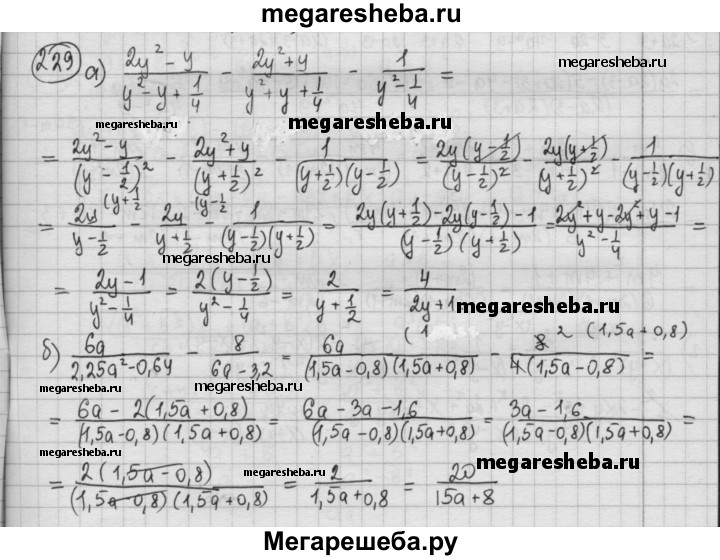 megaresheba.ru
229 а) (2y² - y)/(y² - y + 1/4) - (2y² + y)/(y² + y + 1/4) - 1/(y² - 1/4) =
megaresheba.ru megaresheba.ru
= (2y² - y)/(y - 1/2)² - (2y² + y)/(y + 1/2)² - 1/((y + 1/2)(y - 1/2)) = 2y(y - 1/2)/(y - 1/2)² - 2y(y + 1/2)/(y + 1/2)² - 1/((y - 1/2)(y + 1/2))
= 2y (y + 1/2)/(y - 1/2) - 2y (y - 1/2)/(y + 1/2) - 1/((y - 1/2)(y + 1/2)) = (2y(y + 1/2) - 2y(y - 1/2) - 1)/((y - 1/2)(y + 1/2)) = (2y² + y - 2y² + y - 1)/(y² - 1/4) =
megaresheba.ru
= (2y - 1)/(y² - 1/4) = 2(y - 1/2)/(y² - 1/4) = 2/(y + 1/2) = 4/(2y + 1)
megaresheba.ru
megaresheba.ru
б) 6a/(2,25a² - 0,64) - 8/(6a - 3,2) = 6a/((1,5a - 0,8)(1,5a + 0,8)) - 8 2 (1,5a + 0,8)/(4(1,5a - 0,8)) =
megaresheba.ru
= (6a - 2(1,5a + 0,8))/((1,5a - 0,8)(1,5a + 0,8)) = (6a - 3a - 1,6)/((1,5a - 0,8)(1,5a + 0,8)) = (3a - 1,6)/((1,5a - 0,8)(1,5a + 0,8)) =
megaresheba.ru megaresheba.ru
= 2(1,5a - 0,8)/((1,5a - 0,8)(1,5a + 0,8)) = 2/(1,5a + 0,8) = 20/(15a + 8)
megaresheba.ru megaresheba.ru
Мегарешеба.ру